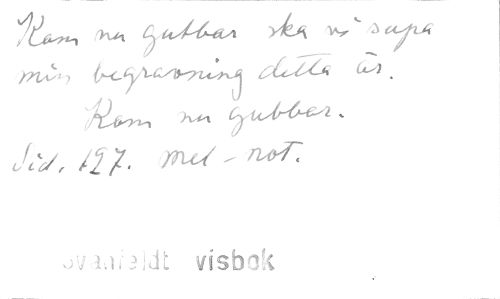 Kom nu gubbar ska vi supa
min begravning detta är.
Kom nu gubbar.
Sid. 127. mel-not.
Svanfeldt visbok